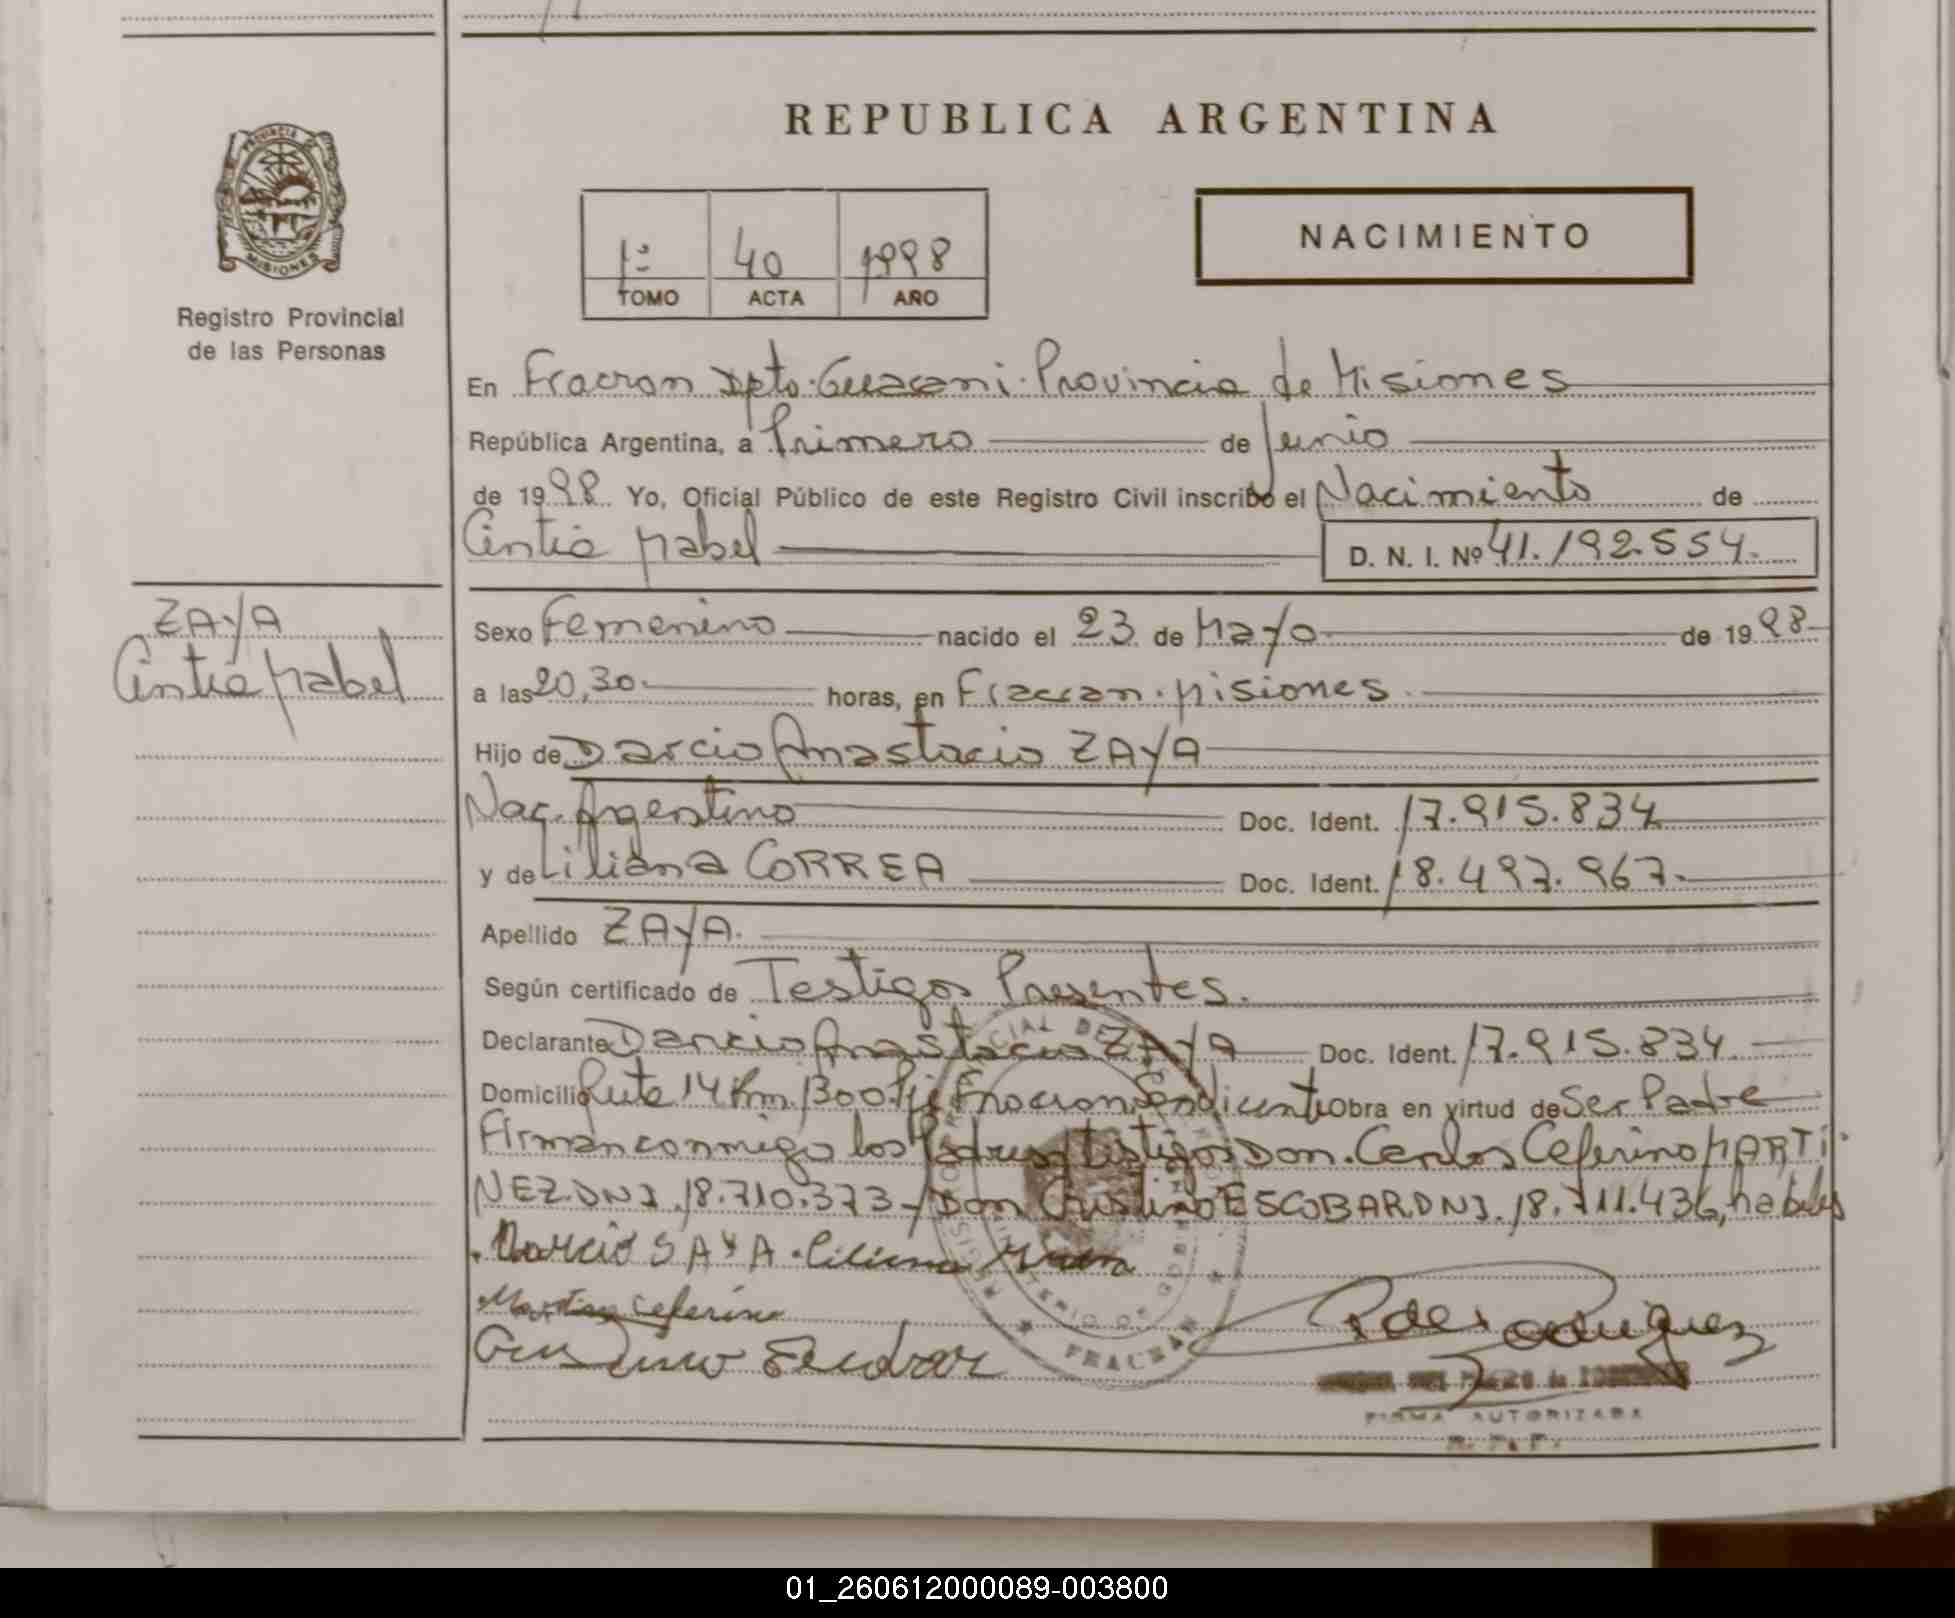 REPUBLICA ARGENTINA
PROVINCIA DE MISIONES
Registro Provincial
de las Personas
1º 40 1998
TOMO ACTA AÑO
NACIMIENTO
En Fracran Dpto. Guarani. Provincia de Misiones
República Argentina, a Primero de Junio
de 1998 Yo, Oficial Público de este Registro Civil inscribo el Nacimiento de
Cintia Mabel D. N. I. Nº 41.192.554.
ZAYA
Cintia Mabel
Sexo Femenino nacido el 23 de Mayo de 1998
a las 20,30 horas, en Fracran. Misiones.
Hijo de Darcio Anastacio ZAYA
Nac. Argentino Doc. Ident. 17.915.834
y de Liliana CORREA Doc. Ident. 18.497.967.
Apellido ZAYA.
Según certificado de Testigos Presentes.
Declarante Darcio Anastacio ZAYA Doc. Ident. 17.915.834.
Domicilio Ruta 14 Km. 1300 Fracran Obra en virtud de Ser Padre
Firman conmigo los Padres y testigos Don. Carlos Ceferino MARTI
NEZ. DNI. 18.710.373 - Don Cristino ESCOBAR DNI. 18.711.436, habiles
Darcio SAYA. Liliana
Martinez Ceferino
Escobar
Rodriguez
FIRMA AUTORIZADA
R. P. P.
FRACRAN
01_260612000089-003800